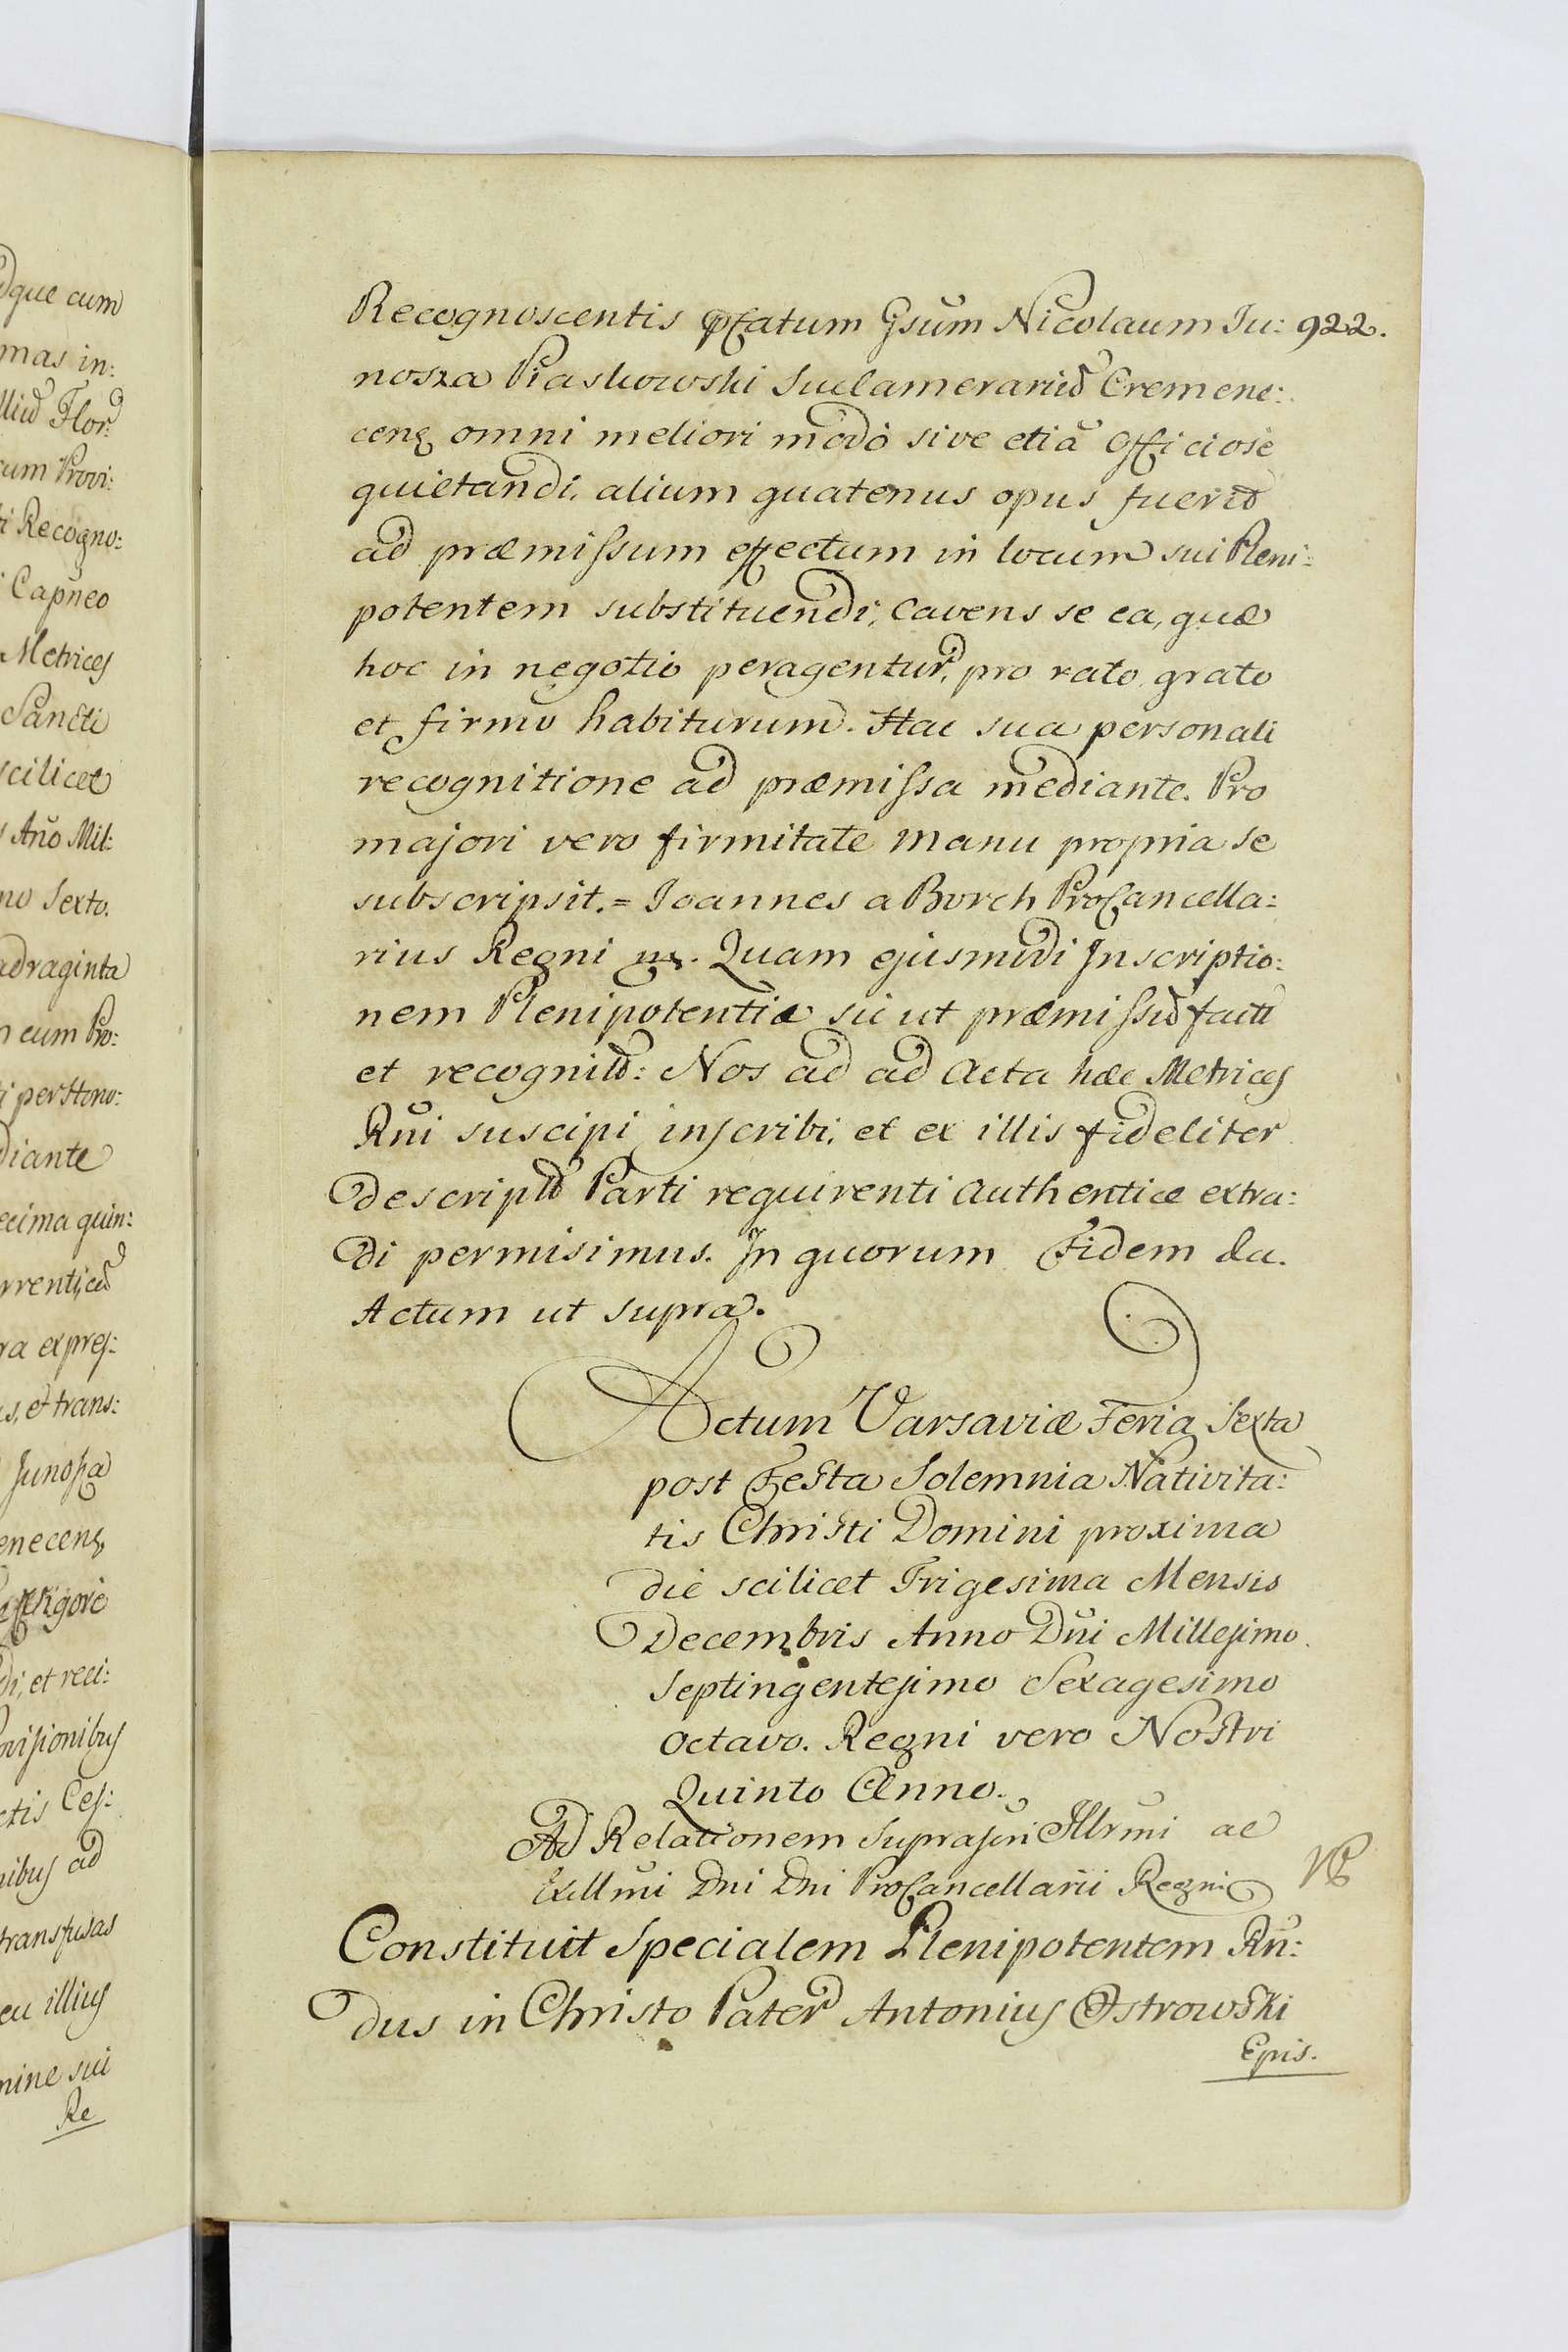 dque cum
mas in:
Flor:
cum Provi:
ti Recogno:
Capňeo
Metrices
Sancti
scilicet
Año Mil:
no Sexto.
adraginta
eum Pro:
diante
ecima quin:
ra expres:
s, et trans:
Junosza
enecens,
di, et reci:
ovisionibus
ctis Ces:
nibus ad
transfusas
eu illius
mine sui
Re
922.
Recognoscentis pfatum Gsum Nicolaum Iu:
nosza Piaskowski Suclamerariū Cremene:
cens omni meliori modo sive etiā Officiose
quietandi, alium quatenus opus fuerit
ad præmissum effectum in locum sui Pleni:
potentem substituendi, Cavens se ea, quæ
hoc in negotio peragentur, pro rato, grato
et firmo habiturum. Hac sua personali
recognitione ad præmissa mediante. Pro
majori vero firmitate manu propria se
subscripsit. = Ioannes a Borch ProCancella:
rius Regni mp. Quam ejusmodi Inscriptio:
nem Plenipotentiæ sic ut præmissū facti
et recognitū: Nos ad ad Acta hæc Metrices
Rñi suscipi, inscribi, et ex illis fideliter
descriptū Parti requirenti Authentice extra:
di permisimus. In quorum Fidem &a.
Actum ut supra.
Actum Varsaviæ Feria Sexta
post Festa Solemnia Nativita:
tis Christi Domini proxima
die scilicet Trigesima Mensis
Decembris Anno Dñi Millesimo
Septingentesimo Sexagesimo
Octavo. Regni vero Nostri
Quinto Anno.
Ad Relationem Suprascri Illrmi ac
Exllmi Dni Dni ProCancellarii Regni
Constituit Specialem Plenipotentem Rñ:
dus in Christo Pater Antonius Ostrowski
Epis.